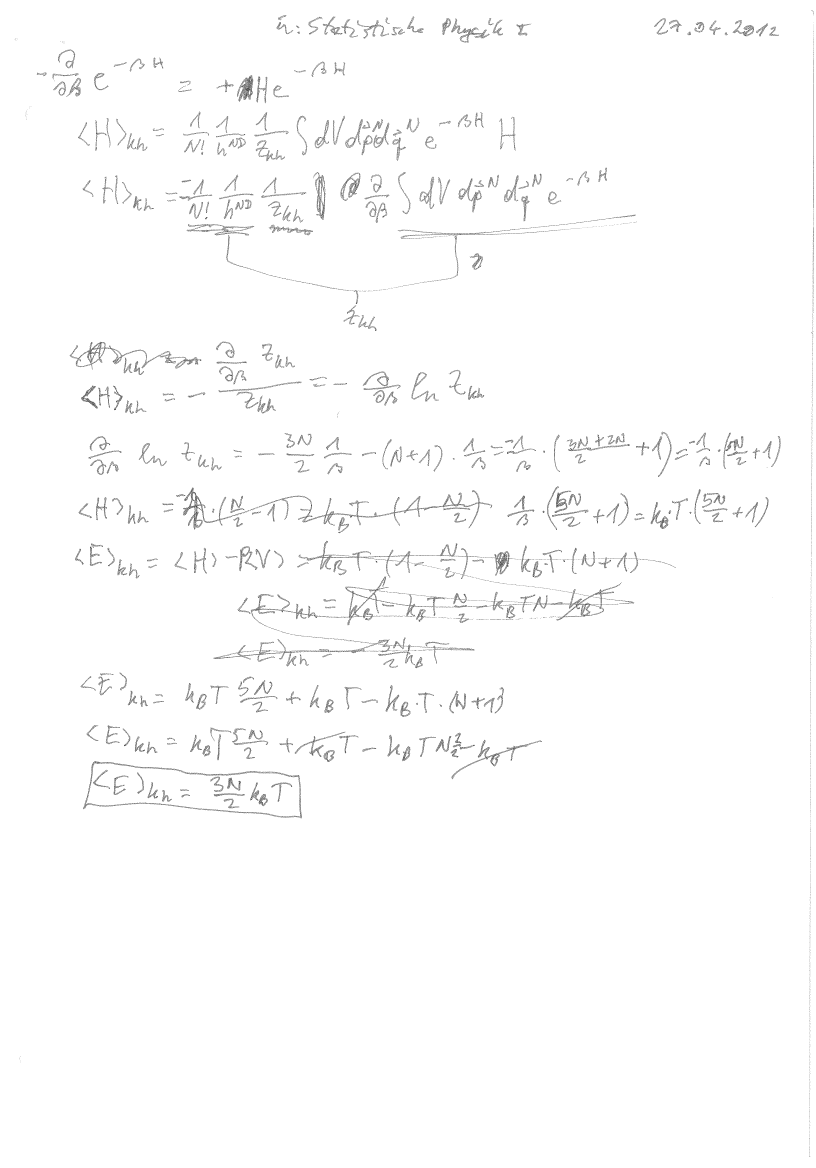 Ü: Statistische Physik I 27.04.2012
-∂/∂β e^{-βH} = +He^{-βH}
⟨H⟩_{kh} = 1/N! 1/h^{ND} 1/Z_{kh} ∫ dV dp⃗^N dq⃗^N e^{-βH} H
⟨H⟩_{kh} = -1/N! 1/h^{ND} 1/Z_{kh} ∂/∂β ∫ dV dp⃗^N dq⃗^N e^{-βH}
Z_{kh}
⟨H⟩_{kh} = - (∂/∂β Z_{kh})/Z_{kh} = - ∂/∂β ln Z_{kh}
∂/∂β ln Z_{kh} = - 3N/2 1/β - (N+1) · 1/β = -1/β · ((3N+2N)/2 + 1) = -1/β · (5N/2 + 1)
⟨H⟩_{kh} = 1/β · (5N/2 + 1) = k_B · T · (5N/2 + 1)
⟨E⟩_{kh} = ⟨H⟩ - P⟨V⟩ = k_B T · (1 - N/2) - k_B · T · (N+1)
⟨E⟩_{kh} = k_B T - k_B T N/2 - k_B T N - k_B T
⟨E⟩_{kh} = - 3N/2 k_B T
⟨E⟩_{kh} = k_B T 5N/2 + k_B T - k_B · T · (N+1)
⟨E⟩_{kh} = k_B T 5N/2 + k_B T - k_B T N 2/2 - k_B T
⟨E⟩_{kh} = 3N/2 k_B T